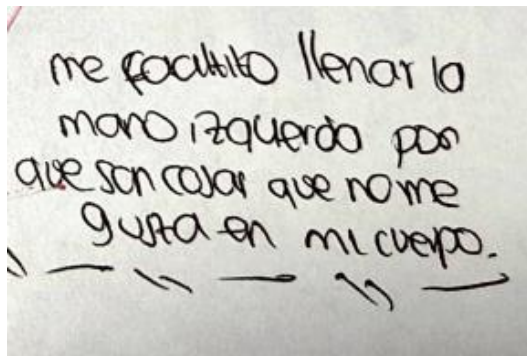 me facultito llenar la
mano izquerda por
que son cosas que no me
gusta en mi cuerpo.